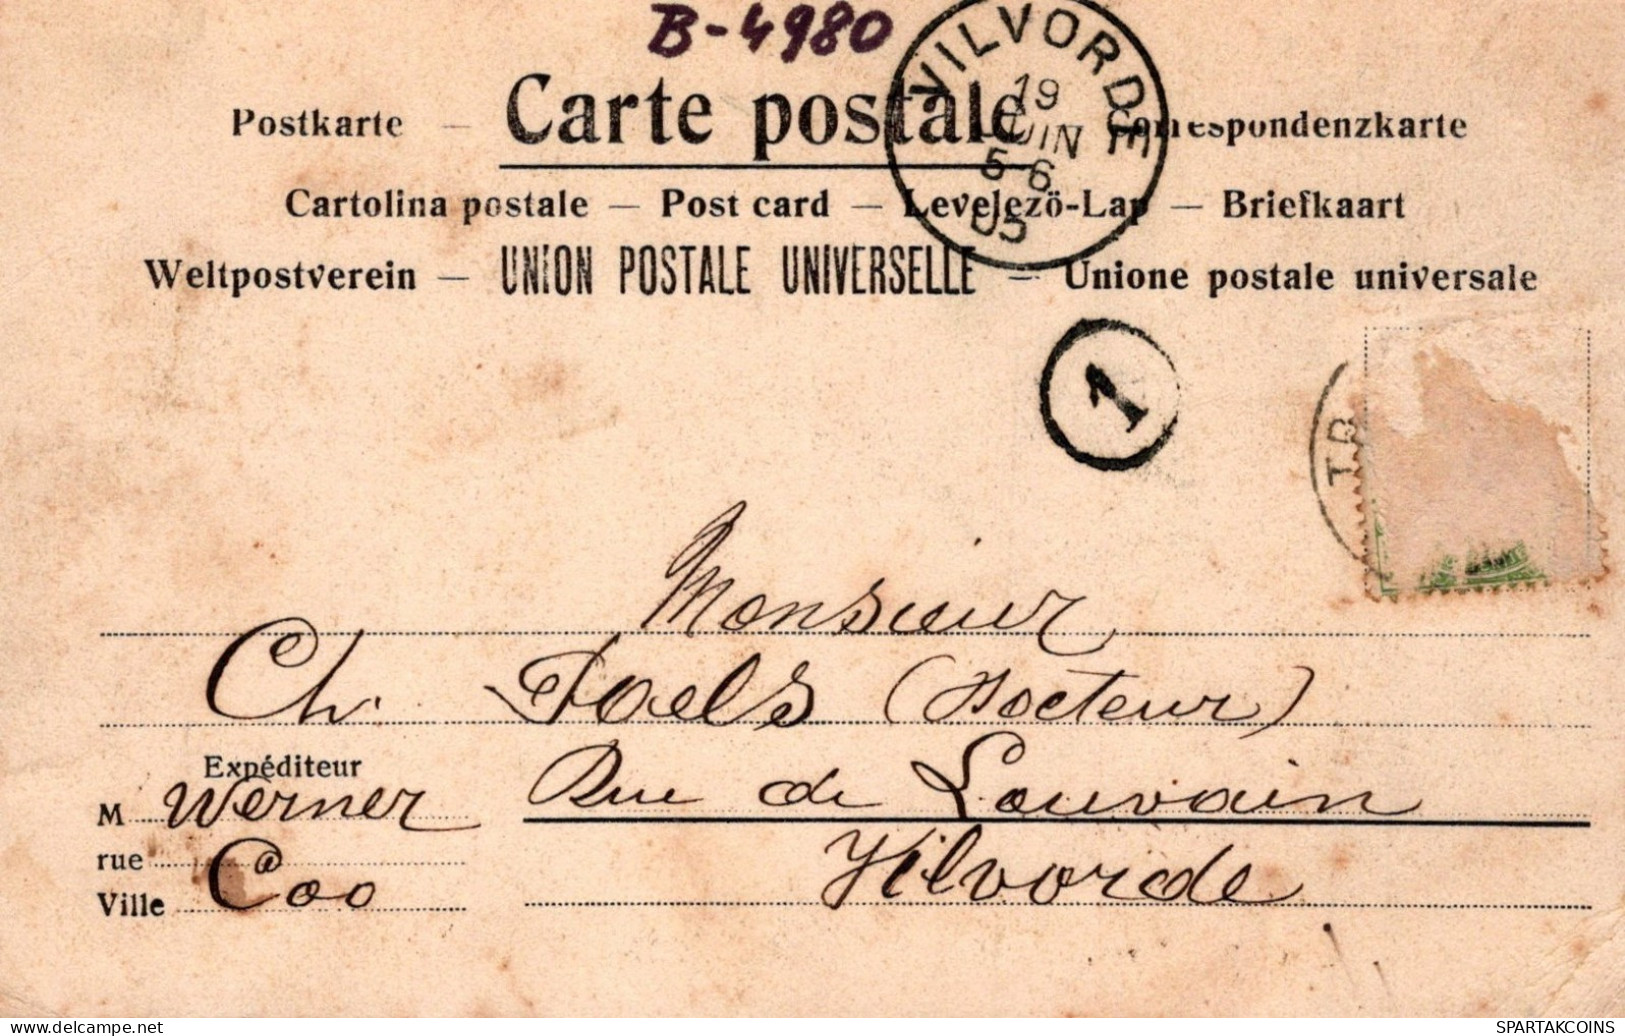 B-4980
VILVORDE
19
JUIN
5-6
05
Postkarte – Carte postale – Correspondenzkarte
Cartolina postale – Post card – Levelezö-Lap – Briefkaart
Weltpostverein – UNION POSTALE UNIVERSELLE – Unione postale universale
1
TR
Monsieur
Ch. (Docteur)
Expéditeur
M Werner
Rue de Louvain
rue
Ville Coo
Vilvorde
https://www.delcampe.net
SPARTAKCOINS